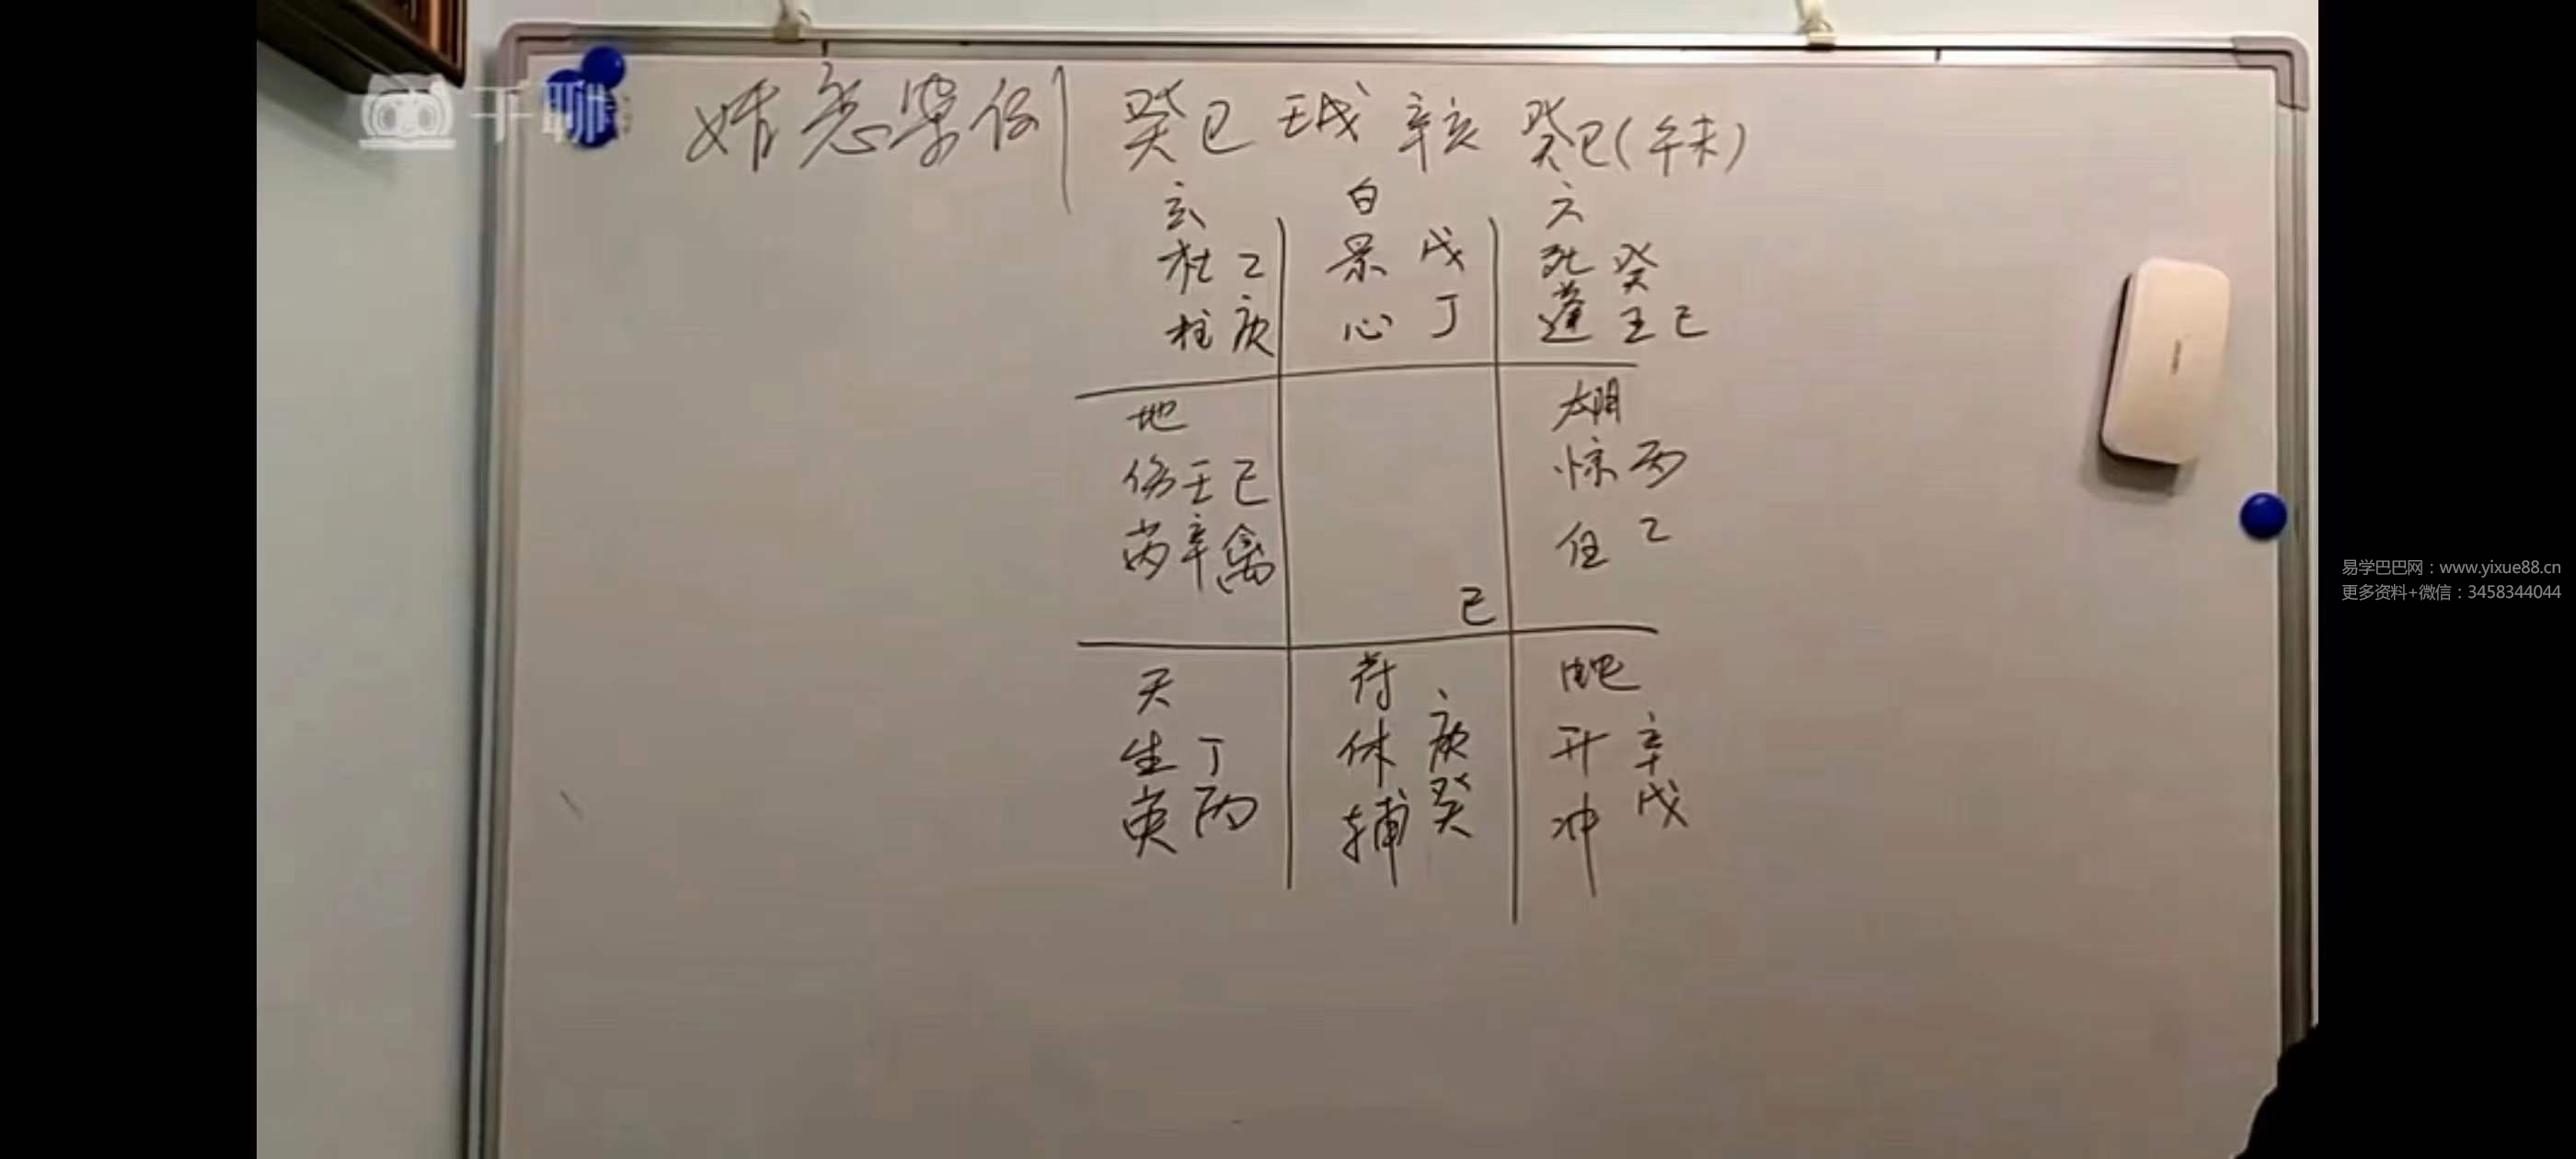 千聊
情态案例 癸巳 壬戌 辛亥 癸巳(午未)
玄 白 六
杜 乙 景 戊 死 癸
柱 庚 心 丁 蓬 壬 己
地 太阴
伤 壬 己 惊 丙
芮 辛 禽 任 乙
己
天 符 蛇
生 丁 休 庚 开 辛
英 丙 辅 癸 冲 戊
易学巴巴网：www.yixue88.cn
更多资料+微信：3458344044